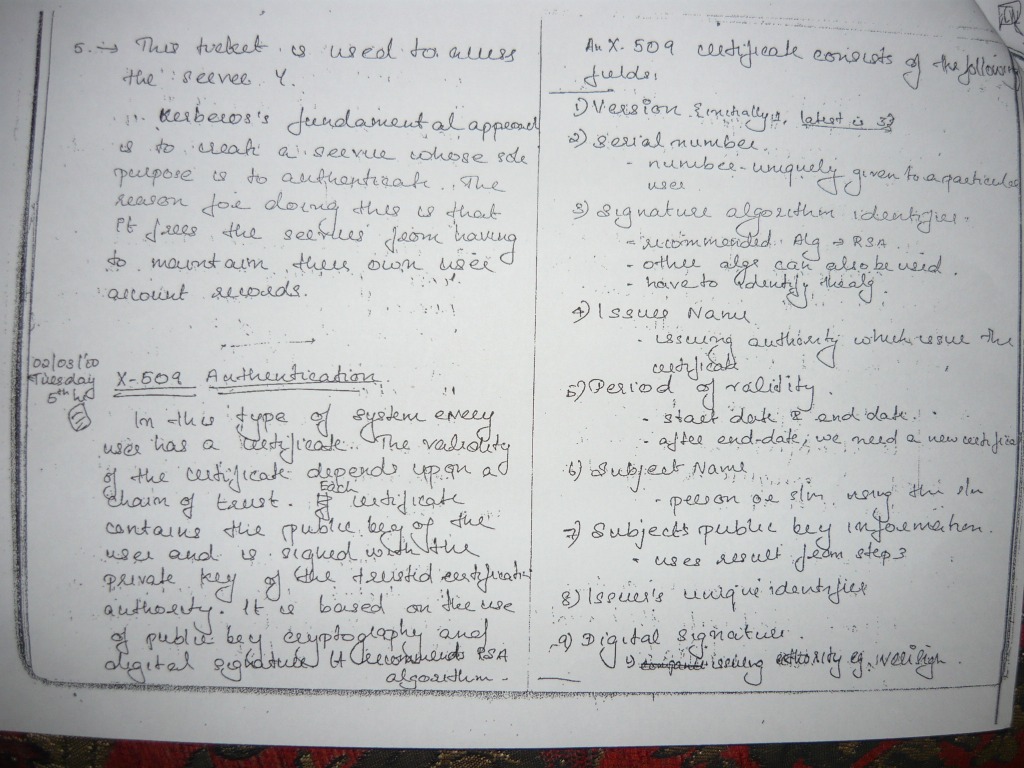 5. → This ticket is used to access
the server Y.
∴ Kerberos's fundamental approach
is to create a server whose sole
purpose is to authenticate. The
reason for doing this is that
it frees the servers from having
to maintain their own user
account records.
02/03/'10
Tuesday
5th hr
X-509 Authentication
In this type of system every
user has a certificate. The validity
of the certificate depends upon a
chain of trust. Each certificate
contains the public key of the
user and is signed with the
private key of the trusted certification
authority. It is based on the use
of public key cryptography and
digital signature. It recommends RSA
algorithm.
An X-509 certificate consists of the following
fields:
1) Version {initially 1, latest is 3}
2) Serial number.
- number uniquely given to a particular
user
3) Signature algorithm identifier.
- recommended Alg → RSA
- other algs can also be used.
- have to identify the alg.
4) Issuer Name
- issuing authority which issue the
certificate
5) Period of validity
- start date & end date.
- after end-date, we need a new certificate
6) Subject Name
- person or s/m using this s/m
7) Subjects public key information.
- uses result from step 3
8) Issuer's unique identifier
9) Digital signature.
issuing authority eg. verisign.